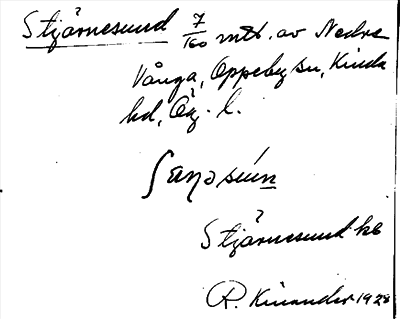 Stjärnesund 7/160 mtl. av Nedre
Vånga, Oppeby sn, Kinda
hd, Ög. l.
Stjärnesund
R. Kinander 1928